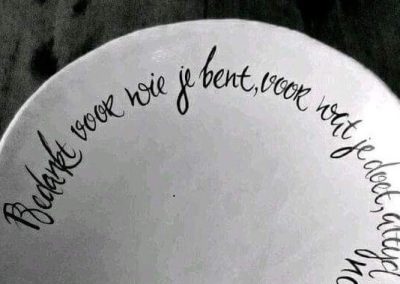 Bedankt voor wie je bent, voor wat je doet, altijd